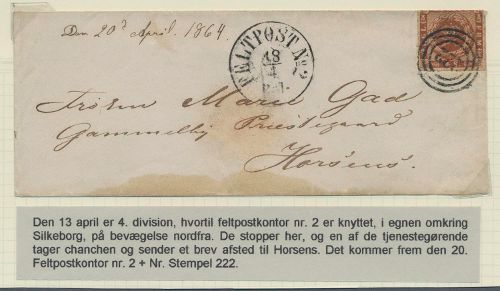 Den 20d April. 1864.
FELTPOST No 2
18
4
Frøken Marie Gad
Gammelby Præstegaard
Horsens.
Den 13 april er 4. division, hvortil feltpostkontor nr. 2 er knyttet, i egnen omkring
Silkeborg, på bevægelse nordfra. De stopper her, og en af de tjenestegørende
tager chanchen og sender et brev afsted til Horsens. Det kommer frem den 20.
Feltpostkontor nr. 2 + Nr. Stempel 222.